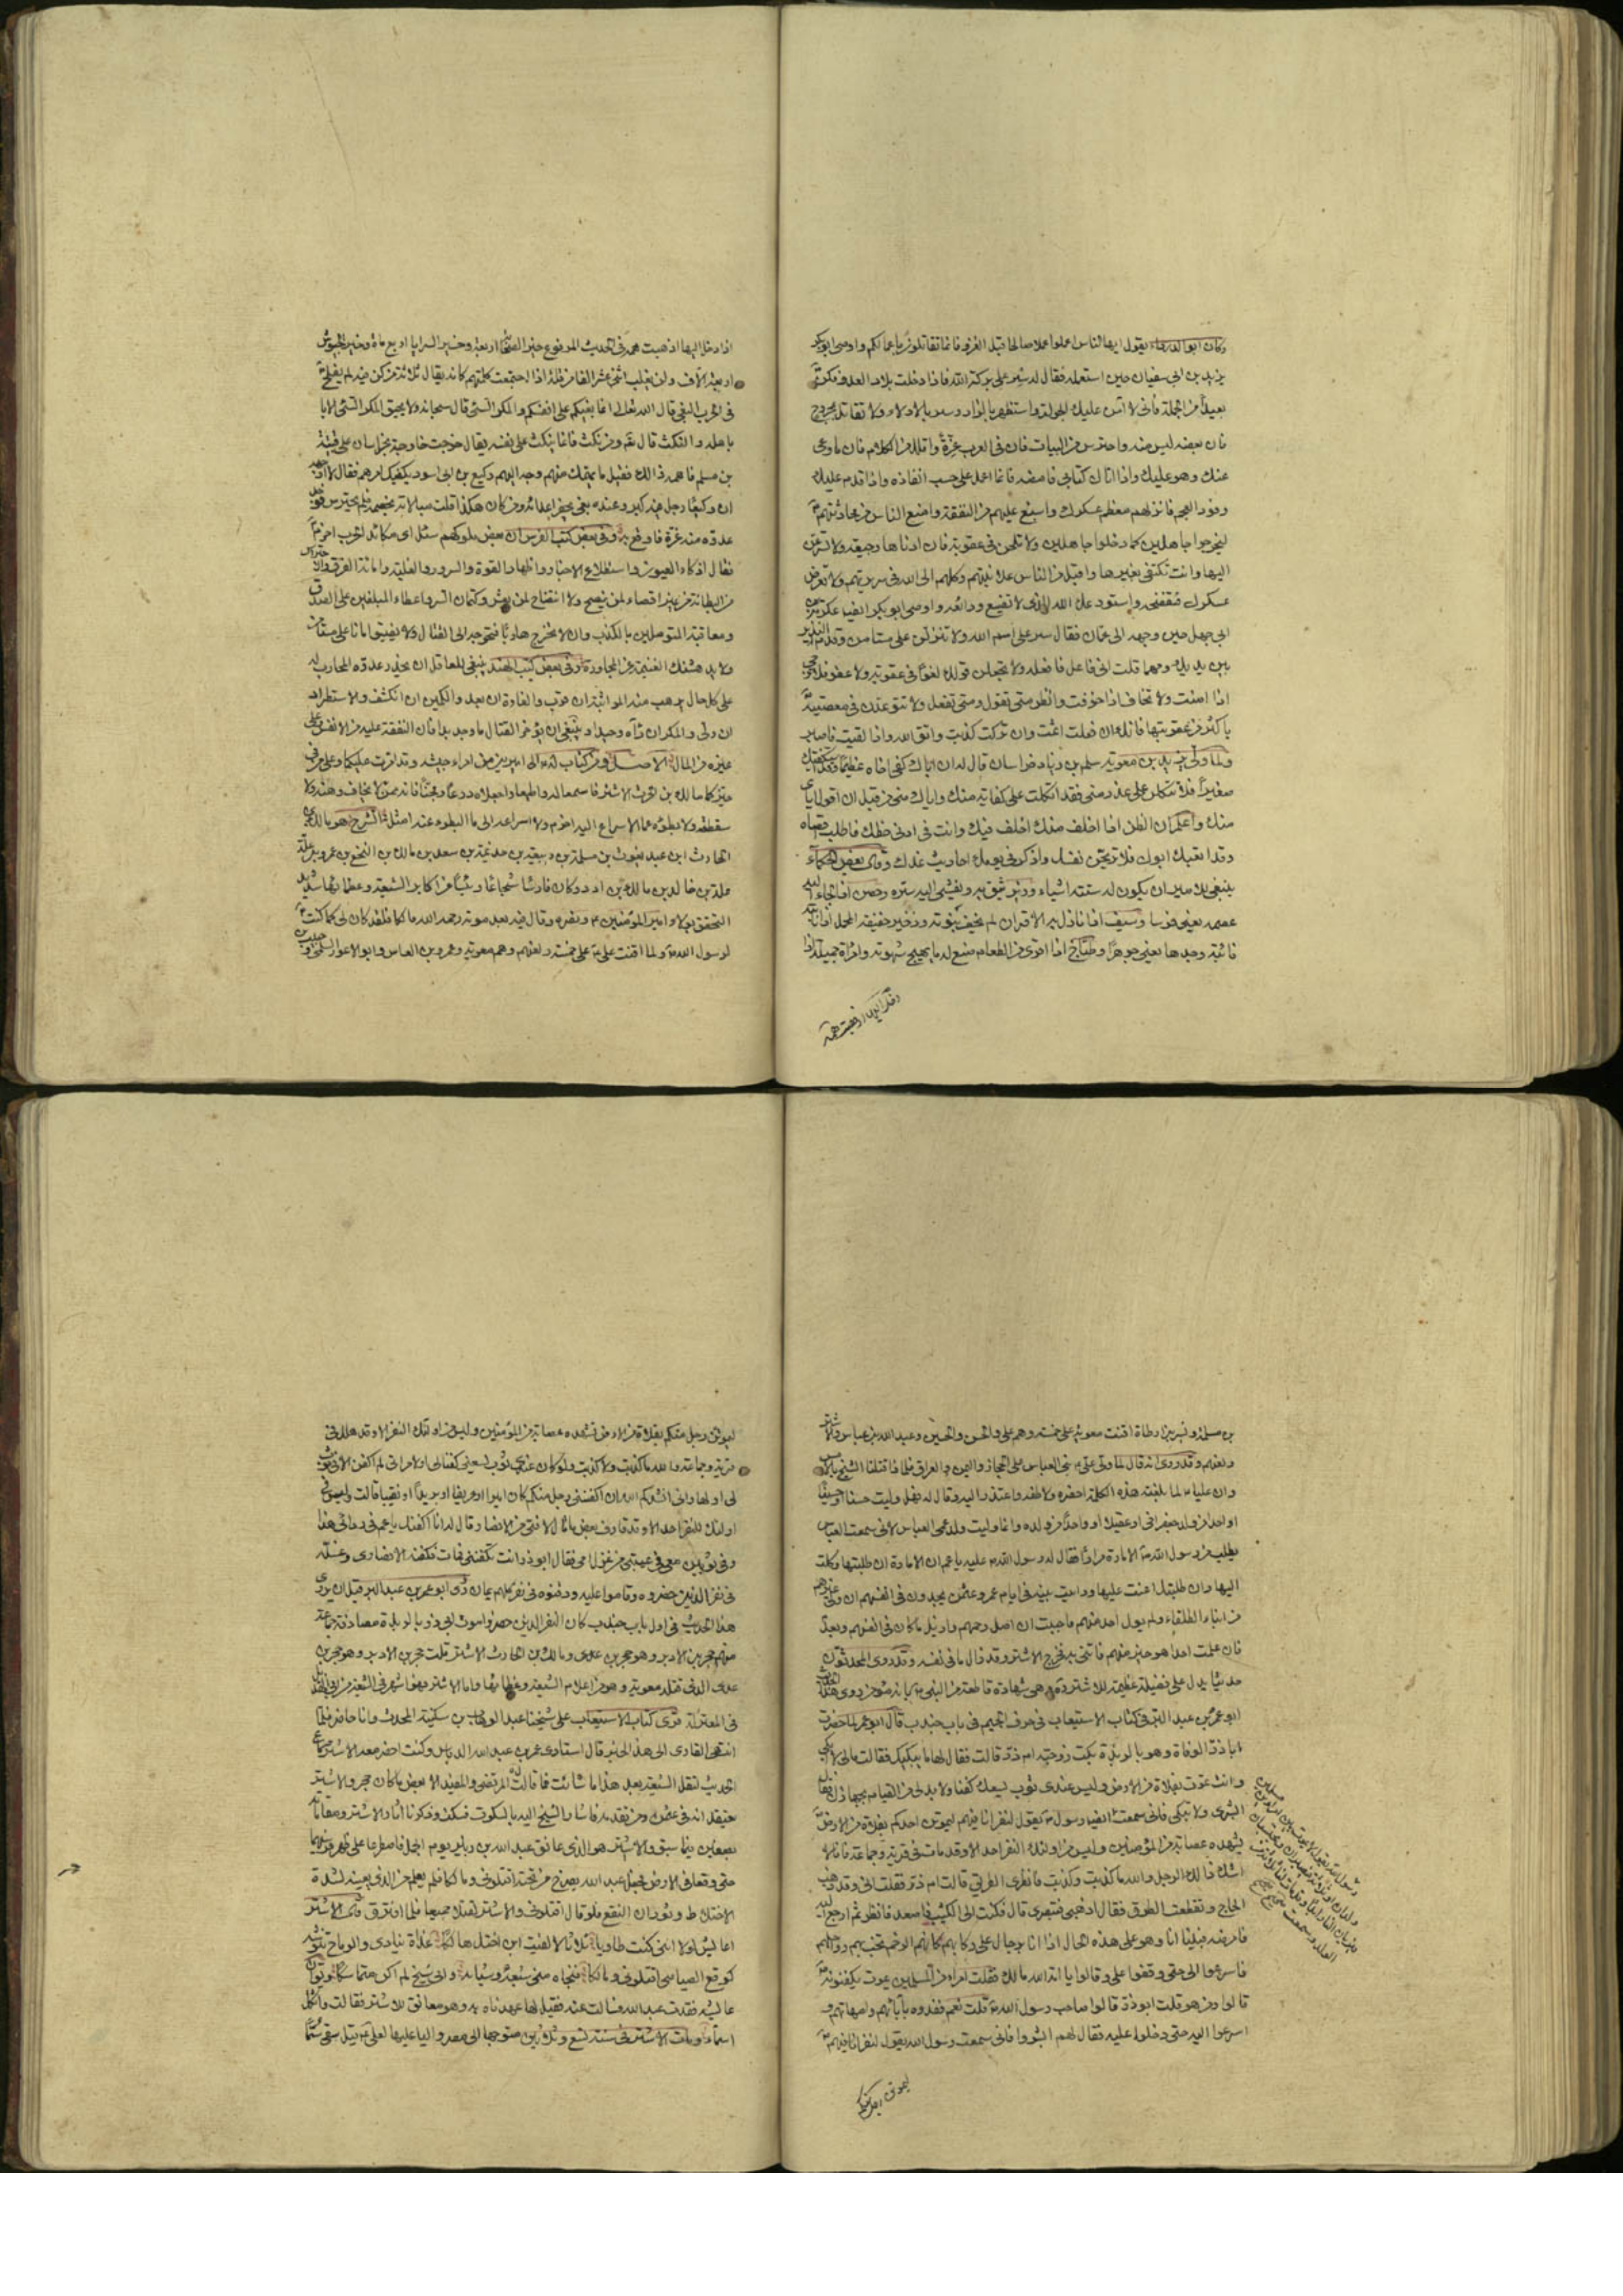 وكان ابو الدرداء يقول ايها الناس اعملوا عملا صالحا قبل الغزو فانما تقاتلون باعمالكم واوصى ابو بكر
يزيد بن ابي سفيان حين استعمله فقال له سر على بركة الله فاذا دخلت بلاد العدو فكن
بعيدا من الحملة فاني لا آمن عليك الجولة واستظهر بالزاد وسر بالادلاء ولا تقاتل بمجروح
فان بعضه ليس منه واحترس من البيات فان في العرب غرة واقلل من الكلام فان ما وعى
عنك وهو عليك واذا اتاك كتابي فامضه فانما اعمل على حسب انفاذه واذا قدم عليك
وفود العجم فانزلهم معظم عسكرك واسبغ عليهم من النفقة وامنع الناس من محادثتهم
ليخرجوا جاهلين كما دخلوا جاهلين ولا تلحن في عقوبة فان ادناها وجيعة ولا تسرعن
اليها وانت تكتفي بغيرها واقبل من الناس علانيتهم وكلهم الى الله في سريرتهم ولا تعرض
عسكرك فتفضحه واستودعك الله الذي لا تضيع ودائعه واوصى ابو بكر ايضا عكرمة بن
ابي جهل حين وجهه الى عمان فقال سر على اسم الله ولا تنزلن على مستامن وقدم النذير
بين يديك ومهما قلت اني فاعل فافعله ولا تجعلن قولك لغوا في عقوبة ولا عفو فلا ترجى
اذا امنت ولا تخاف اذا خوفت وانظر متى تقول ومتى تفعل ولا تتوعدن في معصية
باكثر من عقوبتها فانك ان فعلت اثمت وان تركت كذبت واتق الله واذا لقيت فاصبر
ولما ولى يزيد بن معوية سلم بن زياد خراسان قال له ان اباك كفى اخاه عظيما وقد استكفيتك
صغيرا فلا تتكلن على عذر مني فقد اتكلت على كفاية منك واياك مني من قبل ان اقول اياي
منك واعلم ان الظن اذا اخلف منك اخلف فيك وانت في ادنى حظك فاطلب اقصاه
وقد اتعبك ابوك فلا تريحن نفسك واذكر في يومك احاديث غدك وقال بعض الحكماء
ينبغي للامير ان يكون له ستة اشياء وزير يثق به ويفشي اليه سره وحصن اذا لجأ اليه
عصمه يعني فرسا وسيف اذا نازل به الاقران لم يخف نبوته وذخيرة خفيفة المحمل اذا نابته
نائبة وجدها يعني جوهرا وطباخ اذا اقوى من الطعام صنع له ما يهيج شهوته وامرأة جميلة اذا
اذا دخل اليها اذهبت همه في الحديث المرفوع خير الصحابة اربعة وخير السرايا اربع مائة وخير الجيوش
اربعة الاف ولن يغلب اثنى عشر الفا من قلة اذا اجتمعت كلمتهم كان يقال ثلاثة من كن فيه لم يفلح
في الحرب البغي قال الله تعالى انما بغيكم على انفسكم والمكر السيئ قال سبحانه ولا يحيق المكر السيئ الا
باهله والنكث قال تعالى ومن نكث فانما ينكث على نفسه يقال خرجت خارجة بخراسان على قتيبة
بن مسلم فاهمه ذلك فقيل ما يهمك منهم وجه اليهم وكيع بن ابي اسود يكفيك امرهم فقال لا اوجهه
ان وكيعا رجل فيه كبر وعنده بغي يحقر اعدائه ومن كان هكذا قلت مبالاته بخصمه فلم يحترس فوجد
عدوه منه غرة فاوقع به وفي بعض كتب الفرس ان بعض ملوكهم سئل اي مكائد الحرب احزم
فقال اذكاء العيون واستطلاع الاخبار واظهار القوة والسرور والغلبة واماتة الفرق والاحتراس
من البطانة من غير اقصاء لمن ينصح ولا انتصاح لمن يغش وكتمان السر واعطاء المبلغين على الصدق
ومعاقبة المتوصلين بالكذب وان لا تخرج هاربا فتحوجه الى القتال ولا تضيق امانا على مستامن
ولا يدهشنك الغنيمة عن المجاوزة وفي بعض كتب الهند ينبغي للعاقل ان يحذر عدوه المحارب له
على كل حال يرهب منه المواثبة ان قرب والغارة ان بعد والكمين ان انكشف والاستطراد
ان ولى والمكر ان رآه وحيدا وينبغي ان يؤخر القتال ما وجد بدا فان النفقة عليه من الانفس وعلى
غيره من المال الاصل ومن كتاب له الى اميرين من امراء جيشه وقد امرت عليكما وعلى من في
حيزكما مالك بن الحرث الاشتر فاسمعا له واطيعا واجعلاه درعا ومجنا فانه ممن لا يخاف وهنه ولا
سقطته ولا بطؤه عما الاسراع اليه احزم ولا اسراعه الى ما البطوء عنه امثل الشرح هو مالك بن
الحارث ابن عبد يغوث بن مسلمة بن ربيعة بن خذيمة بن سعد بن مالك بن النخع بن عمرو بن علة
بن خالد بن مالك بن ادد وكان فارسا شجاعا رئيسا من اكابر الشيعة وعظمائها شديد
التحقق بولاء امير المؤمنين ع ونصره وقال فيه بعد موته رحم الله مالكا فلقد كان لي كما كنت
لرسول الله ص ولما قنت علي ع على خمسة ولعنهم وهم معوية وعمرو بن العاص وابو الاعور السلمي وحبيب
وقد اليها ذهبت همه
بن مسلمة وبسر بن ارطاة قنت معوية على خمسة وهم علي والحسن والحسين وعبد الله بن عباس والاشتر
ولعنهم وقد روي انه قال لما ولى علي ع بني العباس على الحجاز واليمن والعراق فلماذا قتلنا الشيخ بالامس
وان عليا ع لما بلغته هذه الكلمة احضره ولاطفه واعتذر اليه وقال له فهل وليت حسنا او حسينا
او احدا من ولد جعفر اخي او عقيلا او واحدا من ولده وانما وليت ولد عمي العباس لاني سمعت العباس
يطلب من رسول الله ص الامارة مرارا فقال له رسول الله ص يا عم ان الامارة ان طلبتها وكلت
اليها وان طلبتك اعنت عليها ورايت بنيه في ايام عمر وعثمن يجدون في انفسهم ان ولي غيرهم
من ابناء الطلقاء ولم يول احد منهم فاحببت ان اصل رحمهم وازيل ما كان في انفسهم وبعد
فان علمت احدا هو خير منهم فائتني به فخرج الاشتر وقد زال ما في نفسه وقد روى المحدثون
حديثا يدل على فضيلة عظيمة للاشتر ره وهي شهادة قاطعة من النبي ص بانه مؤمن روى هذا الحديث
ابو عمر بن عبد البر في كتاب الاستيعاب في حرف الجيم في باب جندب قال ابو عمر لما حضرت
ابا ذر الوفاة وهو بالربذة بكت زوجته ام ذر قالت فقال لها ما يبكيك فقالت ما لي لا ابكي
وانت تموت بفلاة من الارض وليس عندي ثوب يسعك كفنا ولا بد لي من القيام بجهازك فقال
ابشري ولا تبكي فاني سمعت ايضا رسول ص يقول لنفر انا فيهم ليموتن احدكم بفلاة من الارض
يشهده عصابة من المؤمنين وليس من اولئك النفر احد الا وقد مات في قرية وجماعة فانا لا
اشك ذلك الرجل والله ما كذبت وكذبت فانظري الطريق قالت ام ذر فقلت انى وقد ذهب
الحاج وتقطعت الطرق فقال اذهبي فتبصري قال فكنت الى الكثيب فاصعد فانظر ثم ارجع اليه
فامرضه فبينا انا وهو على هذه الحال اذا انا برجال على ركابهم كانهم الرخم تخب بهم رواحلهم
فاسرعوا الى حتى وقفوا علي وقالوا يا امة الله مالك فقلت امرؤ من المسلمين يموت تكفنونه
قالوا ومن هو قلت ابو ذر قالوا صاحب رسول الله ص قلت نعم ففدوه بآبائهم وامهاتهم و
اسرعوا اليه حتى دخلوا عليه فقال لهم ابشروا فاني سمعت رسول الله يقول لنفر انا فيهم
ليموتن رجل منكم
ليموتن رجل منكم بفلاة من الارض تشهده عصابة من المؤمنين وليس من اولئك النفر الا وقد هلك في
قرية وجماعة والله ما كذبت ولا كذبت ولو كان عندي ثوب يسعني كفنا لي او لامراتي لم اكفن الا في ثوب
لي او لها واني انشدكم الله ان لا يكفنني رجل منكم كان اميرا او عريفا او بريدا او نقيبا قالت وليس في
اولئك النفر احد الا وقد قارف بعض ما قال الا فتى من الانصار قال له انا اكفنك يا عم في ردائي هذا
وفي ثوبين معي في عيبتي من غزل امي فقال ابو ذر انت تكفنني فمات فكفنه الانصاري وغسله
في نفر الذين حضروه وقاموا عليه ودفنوه في نفر كلهم يمان روى ابو عمر بن عبد البر قبل ان يروى
هذا الحديث في اول باب جندب كان النفر الذين حضروا موت ابي ذر بالربذة مصادفة جماعة
منهم حجر بن الادبر وهو حجر بن عدي ومالك بن الحارث الاشتر قلت حجر بن الادبر وهو حجر بن
عدي الذي قتله معوية وهو من اعلام الشيعة وعظمائها واما الاشتر فهو اشهر في الشيعة من ابي الهذيل
في المعتزلة قرئ كتاب الاستيعاب على شيخنا عبد الوهاب بن سكينة المحدث وانا حاضر فلما
انتهى القاري الى هذا الخبر قال استاذي عمر بن عبد الله الدباس وكنت احضر معه الاشتر سماع
الحديث لتقل الشيعة بعد هذا ما شائت فما قال المرتضى والمفيد الا بعض ما كان حجر والاشتر
يعتقدانه في عثمن ومن تقدمه فاشار الشيخ اليه بالسكوت فسكت وذكرنا آثار الاشتر ومقاماته
بصفين فيما سبق والاشتر هو الذي عانق عبد الله بن زبير يوم الجمل فاصطرعا على ظهر فرسيهما
حتى وقعا في الارض فجعل عبد الله يصرخ من تحته اقتلوني ومالكا فلم يعلم من الذي يعنيه لشدة
الاختلاط وثوران النقع فلو قال اقتلوني والاشتر لقتلا جميعا فلما افترق قال الاشتر
اعايش لولا انني كنت طاويا ثلاثا لالفيت ابن اختك هالكا غداة ينادي والرماح تنوشه
كوقع الصياصي اقتلوني ومالكا فنجاه مني شبعه وشبابه واني شيخ لم اكن متماسكا ويقال ان
عايشة فقدت عبد الله فسالت عنه فقيل لها عهدنا به وهو معانق للاشتر فقالت واثكل
اسماء ومات الاشتر في سنة تسع وثلاثين متوجها الى مصر واليا عليها لعلي ع قيل سقي سما